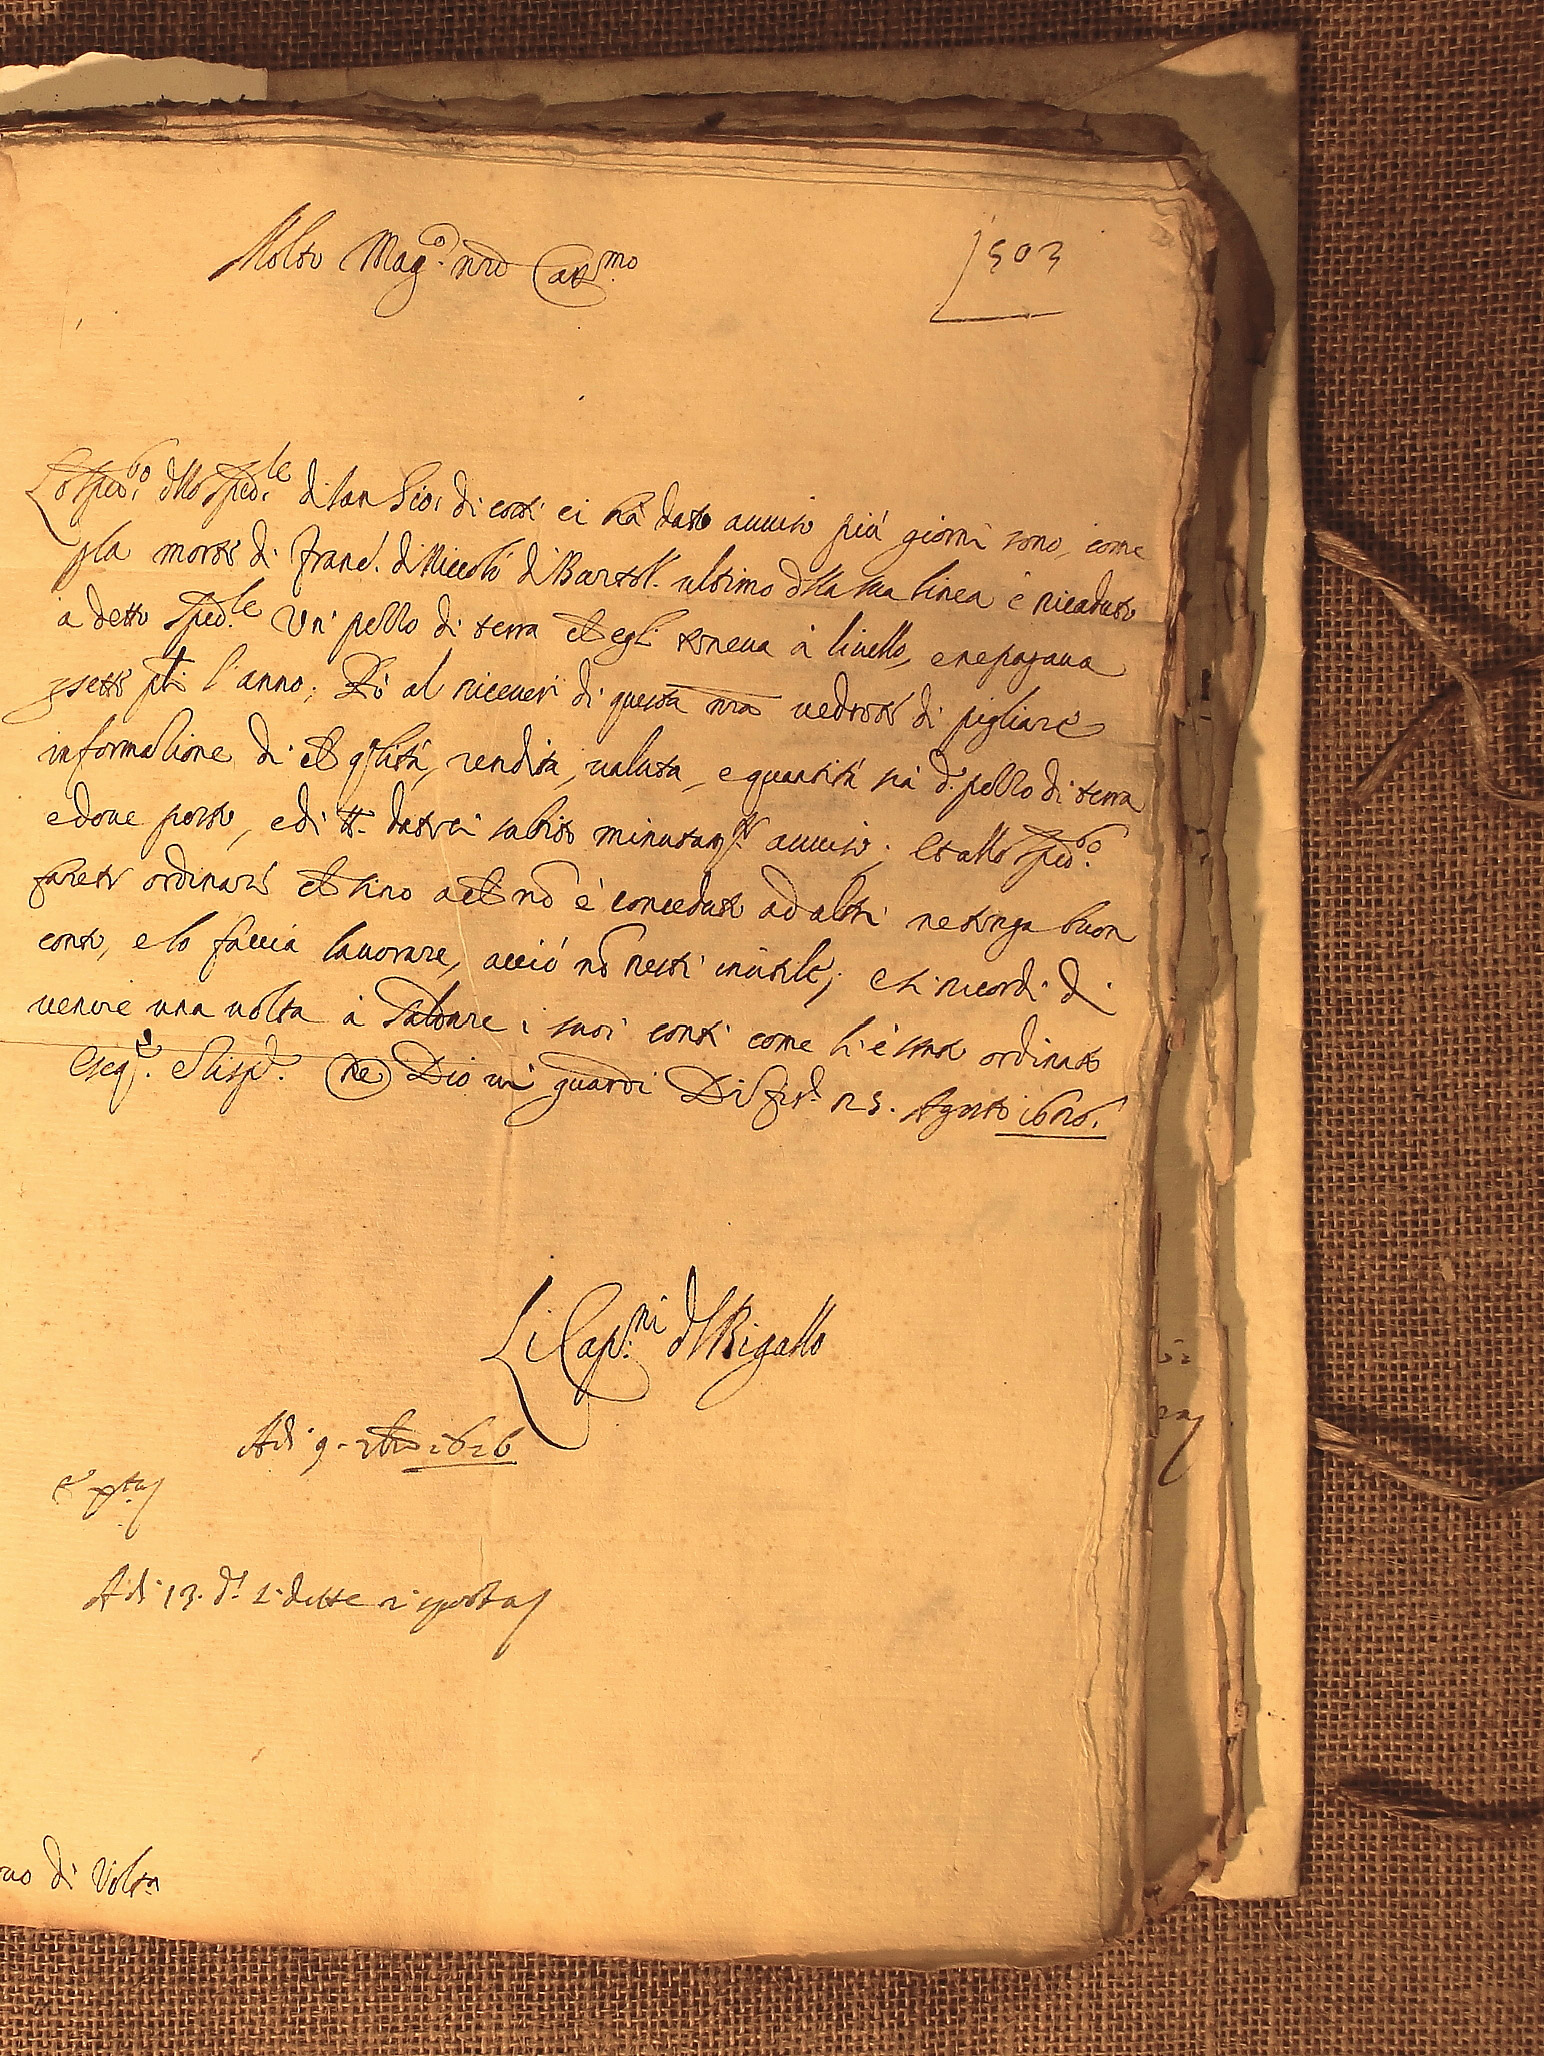 Molto Mag.co nro Car.mo
1503
Lo sped.go dllo sped.le di san Gio: di costì ci hà dato auuiso più giorni sono, come
pla morte di Franc.o di Niccolò di Bartol.o ultimo dlla sua linea è ricaduto
a detto sped.le un' pezzo di terra ch egli teneua à liuello, e ne pagaua
l'anno; Però al riceuer di questa nra uedrete di pigliare
informazione di che qlità, rendita, ualuta, e quantità sia d.o pezzo di terra
e doue posto, e di tt.o dateci subito minutam.te auuiso; et allo sped.go
farete ordinare che sino a che nō è conceduto ad altri ne tenga buon
conto, e lo faccia lauorare, acciò nō resti inutile; e si ricordi di
uenire una uolta à saldare i suoi conti come li è stato ordinato
Dio ui guardi Di Fir.e 25. Agosto 1626.
Li Cap.ni dl Bigallo
Adi 9. 7bre 1626
Adi 13. d.o si dette risposta
di Volt.a